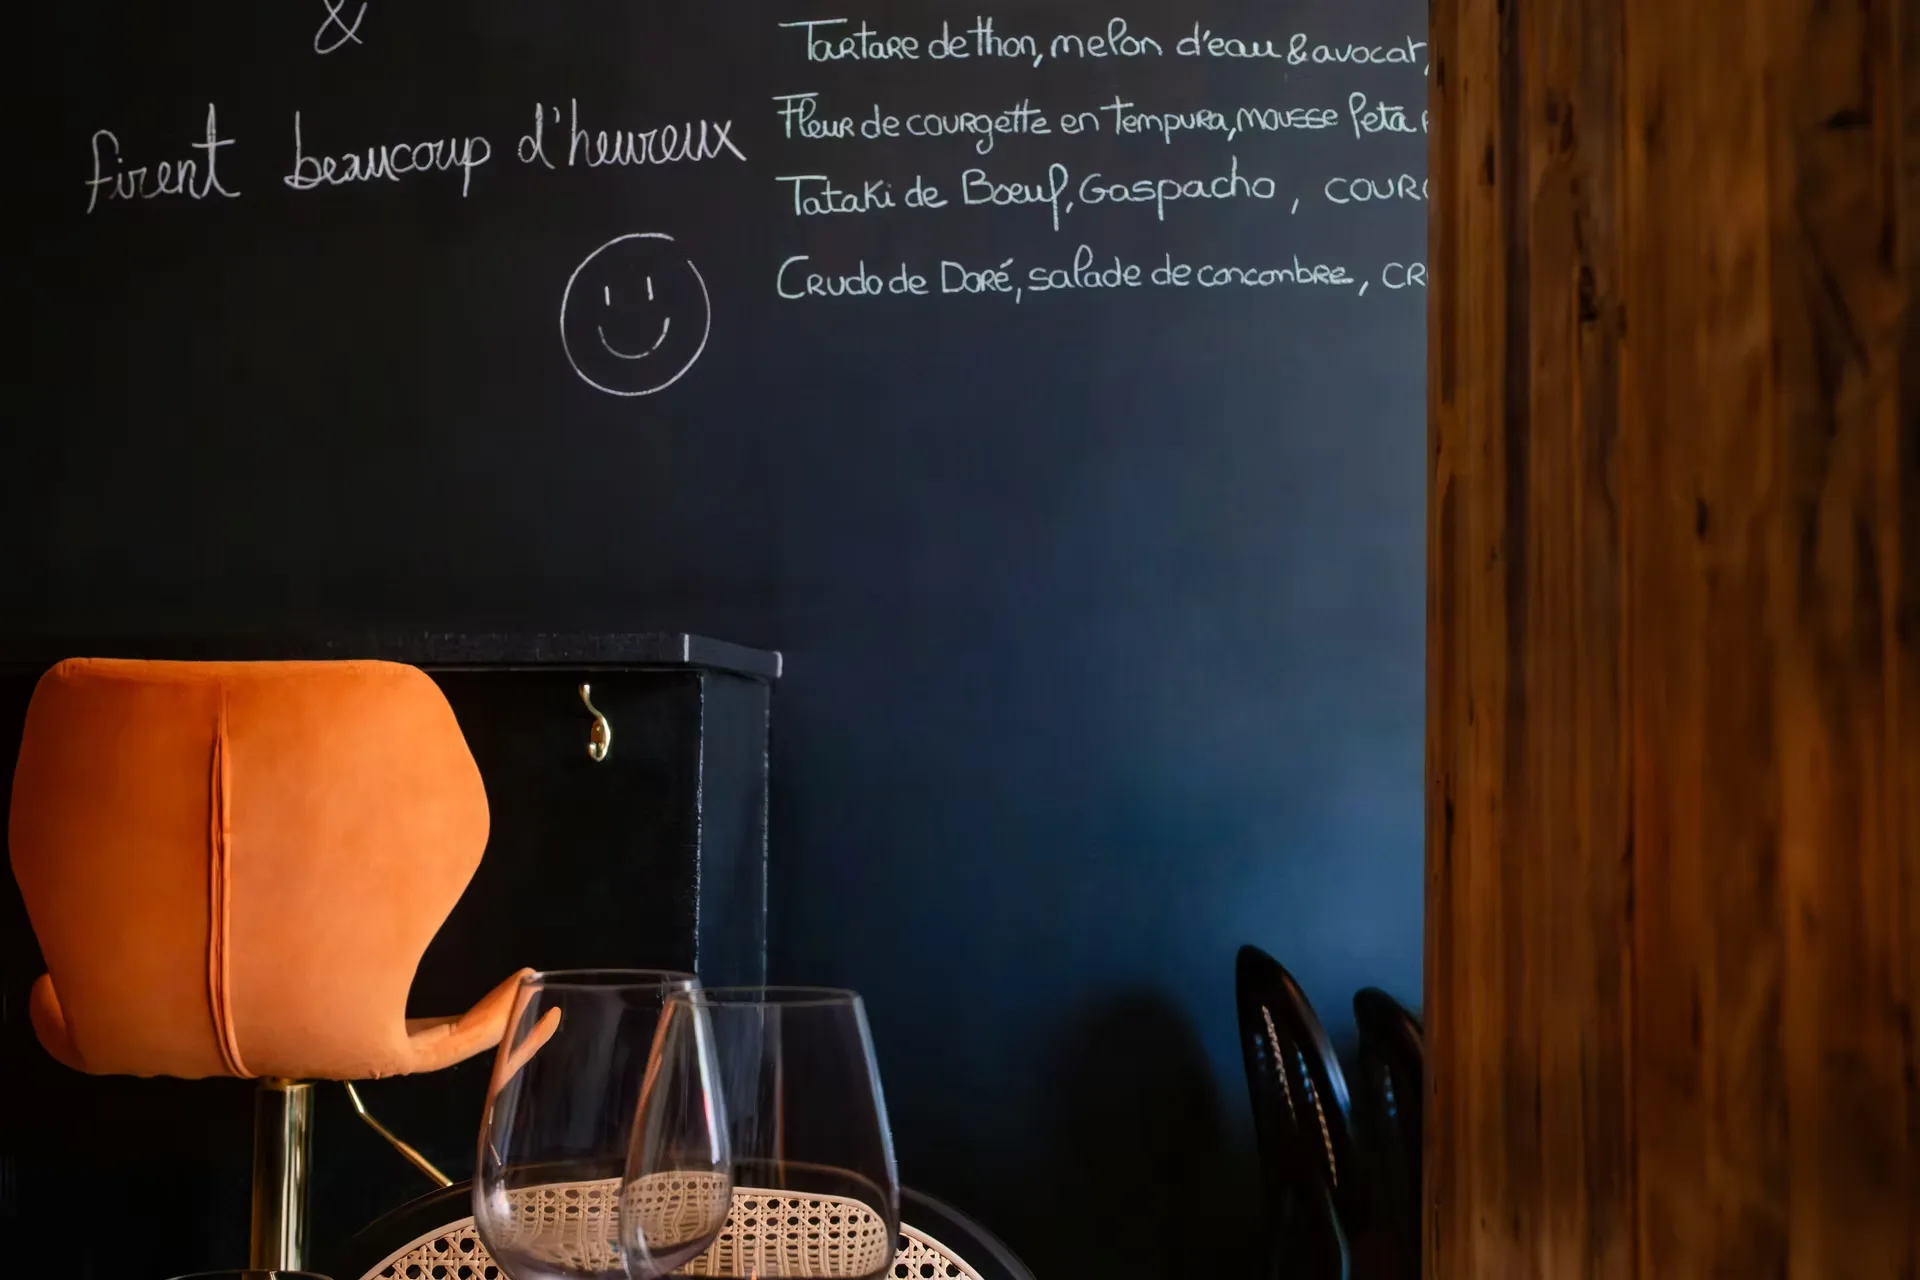 &
firent beaucoup d'heureux
Tartare de thon, melon d'eau & avocat,
Fleur de courgette en tempura, mousse feta
Tataki de Boeuf, Gaspacho, 
Crudo de Doré, salade de concombre,